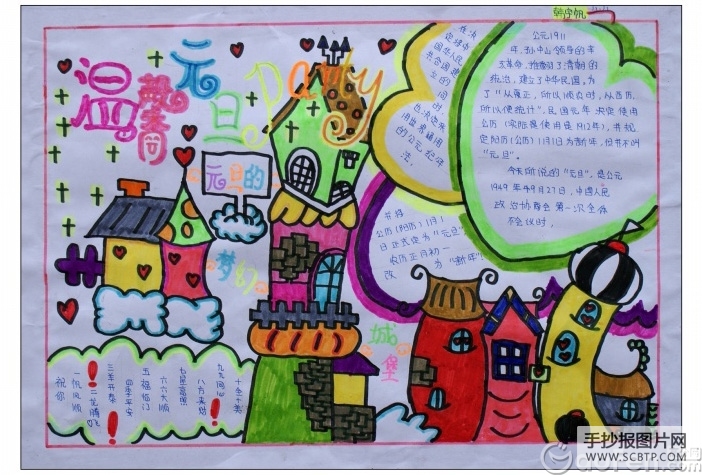 韩宇帆
温馨春尚
元旦Party
元旦的
梦幻
城堡
公元1911
年，孙中山领导的辛
亥革命，推翻了清朝的
统治，建立了中华民国。为
了"从夏正，所以顺农时，从西历，
所以便统计"，民国元年决定使用
公历（实际是使用是1912年），并规
定阳历（公历）1月1日为新年，但并不叫
"元旦"。
今天所说的"元旦"，是公元
1949年49月27日，中国人民
政治协商会第一次全体
不会议时，
在决
定建中
国华人民
共合国建
立的同
时
也决定采
用世界通用
的公元纪年
法，
并将
公历（阳历）1月1
日正式定为"元旦"
农历正月初一
改为"新年"。
祝你
一帆风顺
二龙腾飞
三羊开泰
四季平安
五福临门
六六大顺
七星高照
八方来财
九九同心
十全十美
手抄报图片网
WWW.SCBTP.COM